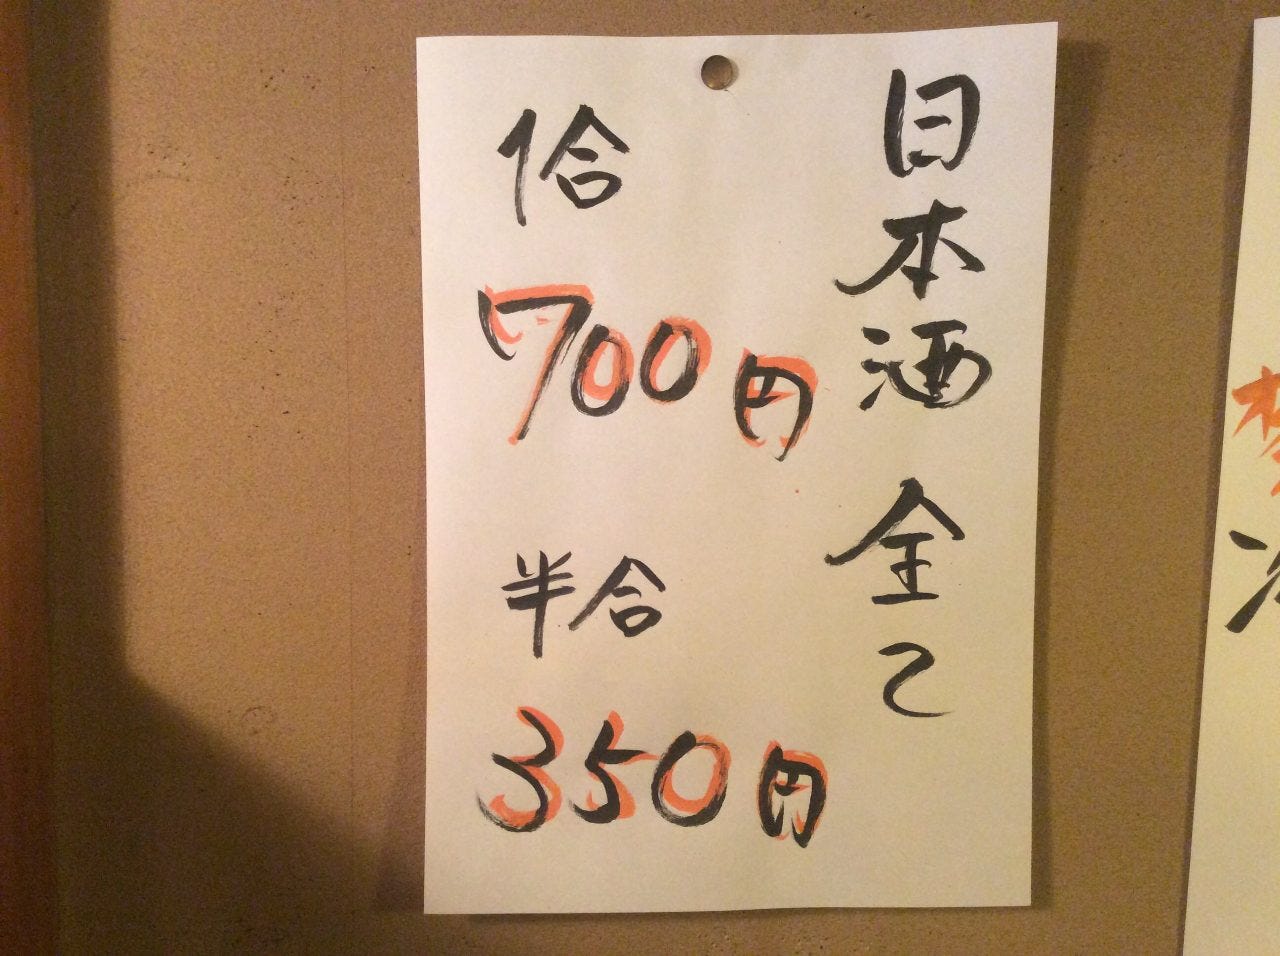 日本酒 全て
1合
700円
半合
350円